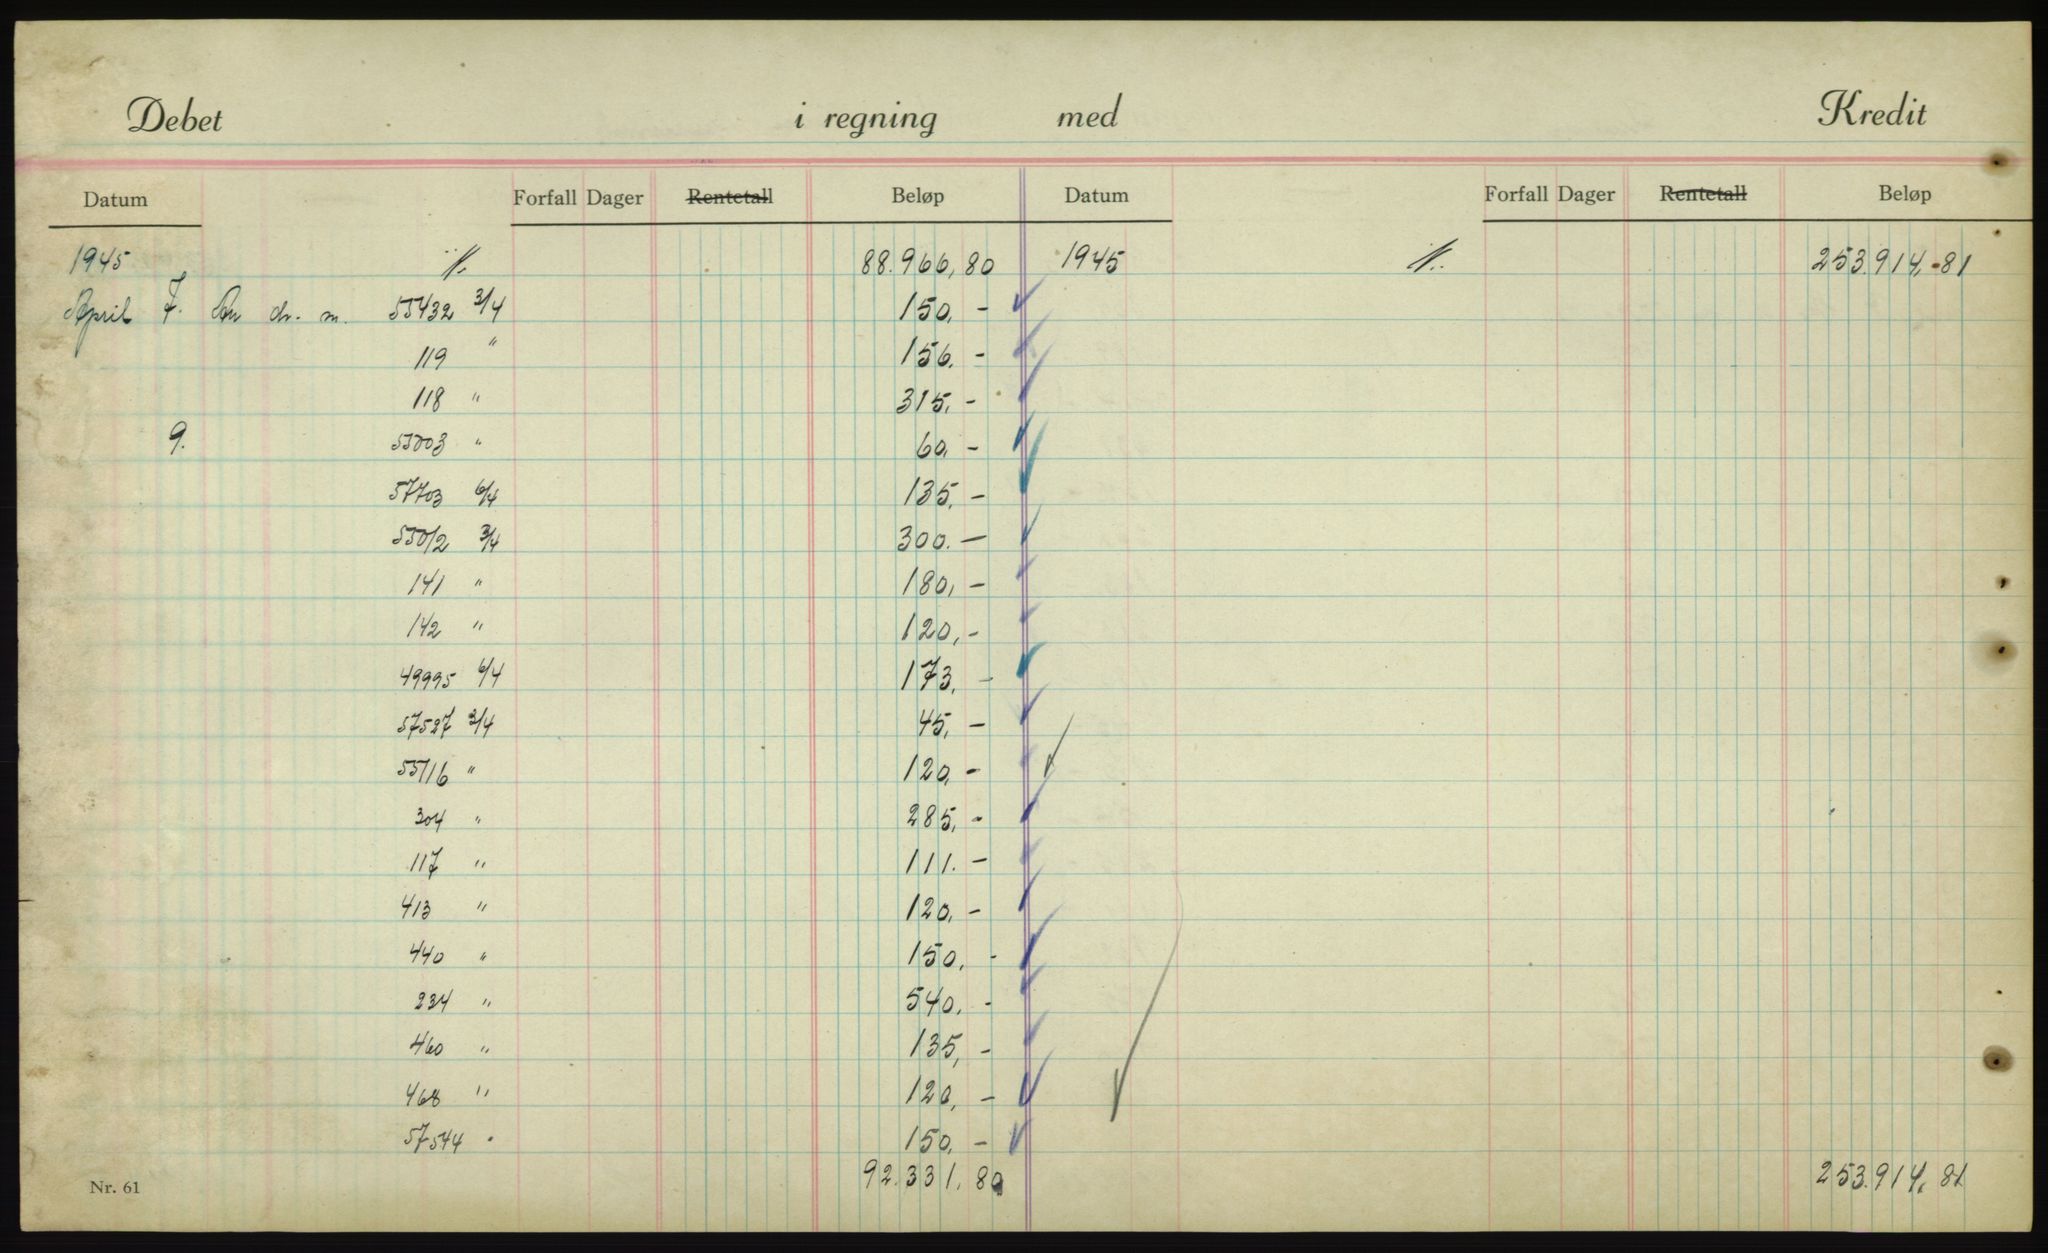 Debet i regning med Kredit
Datum Forfall Dager Rentetall Beløp Datum Forfall Dager Rentetall Beløp
1945 88.966,80 1945 253.914,81
April 7. An ch. m. 55432 3/4 150,-
119 " 156.-
118 " 315,-
9. 55003 " 60,-
57703 6/4 135,-
55012 3/4 300.-
141 " 180,-
142 " 120,-
49995 6/4 173,-
57527 3/4 45,-
55716 " 120,-
304 " 285,-
117 " 111.-
413 " 120,-
440 " 150,-
234 " 540,-
460 " 135,-
468 " 120,-
57544 " 150,-
92.331,80 253.914,81
Nr. 61